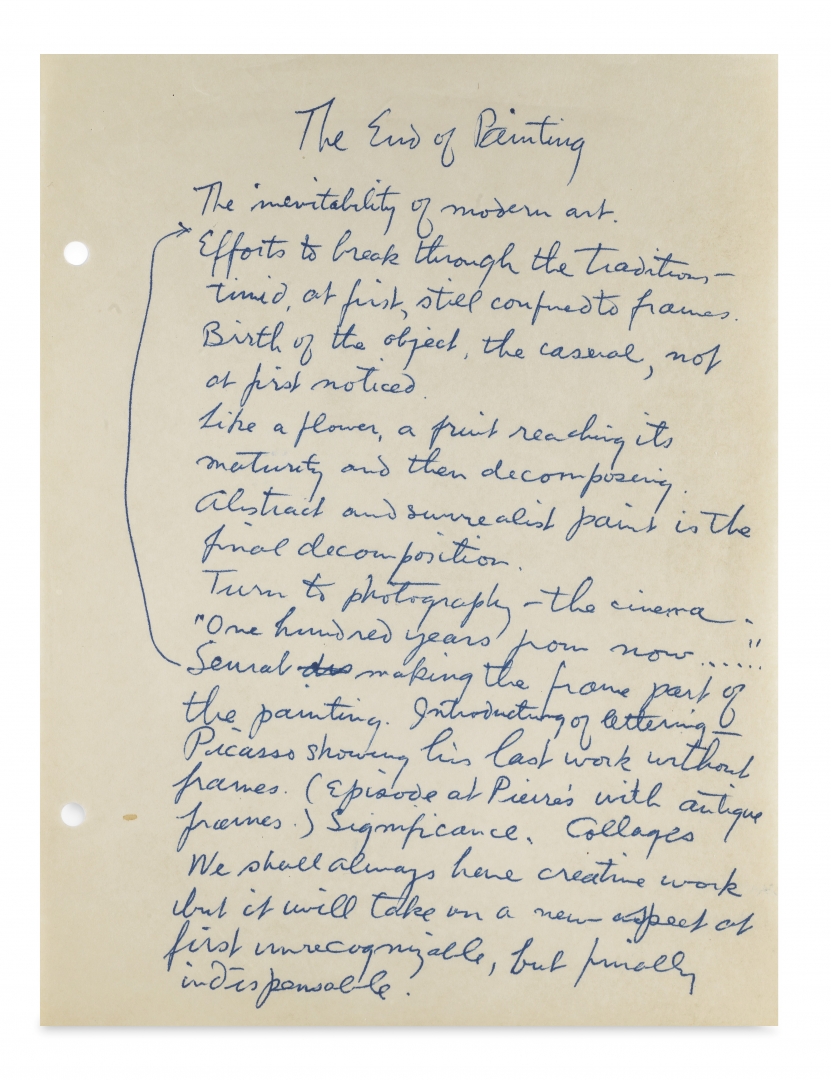 The End of Painting
The inevitability of modern art.
Efforts to break through the traditions—
timid, at first, still confined to frames.
Birth of the object, the casual, not
at first noticed.
Like a flower, a fruit reaching its
maturity and then decomposing.
Abstract and surrealist paint is the
final decomposition.
Turn to photography – the cinema.
"One hundred years from now......"
Seurat making the frame part of
the painting. Introducting of lettering—
Picasso showing his last work without
frames. (Episode at Pierre's with antique
frames.) Significance. Collages
We shall always have creative work
but it will take on a new aspect at
first unrecognizable, but finally
indispensable.